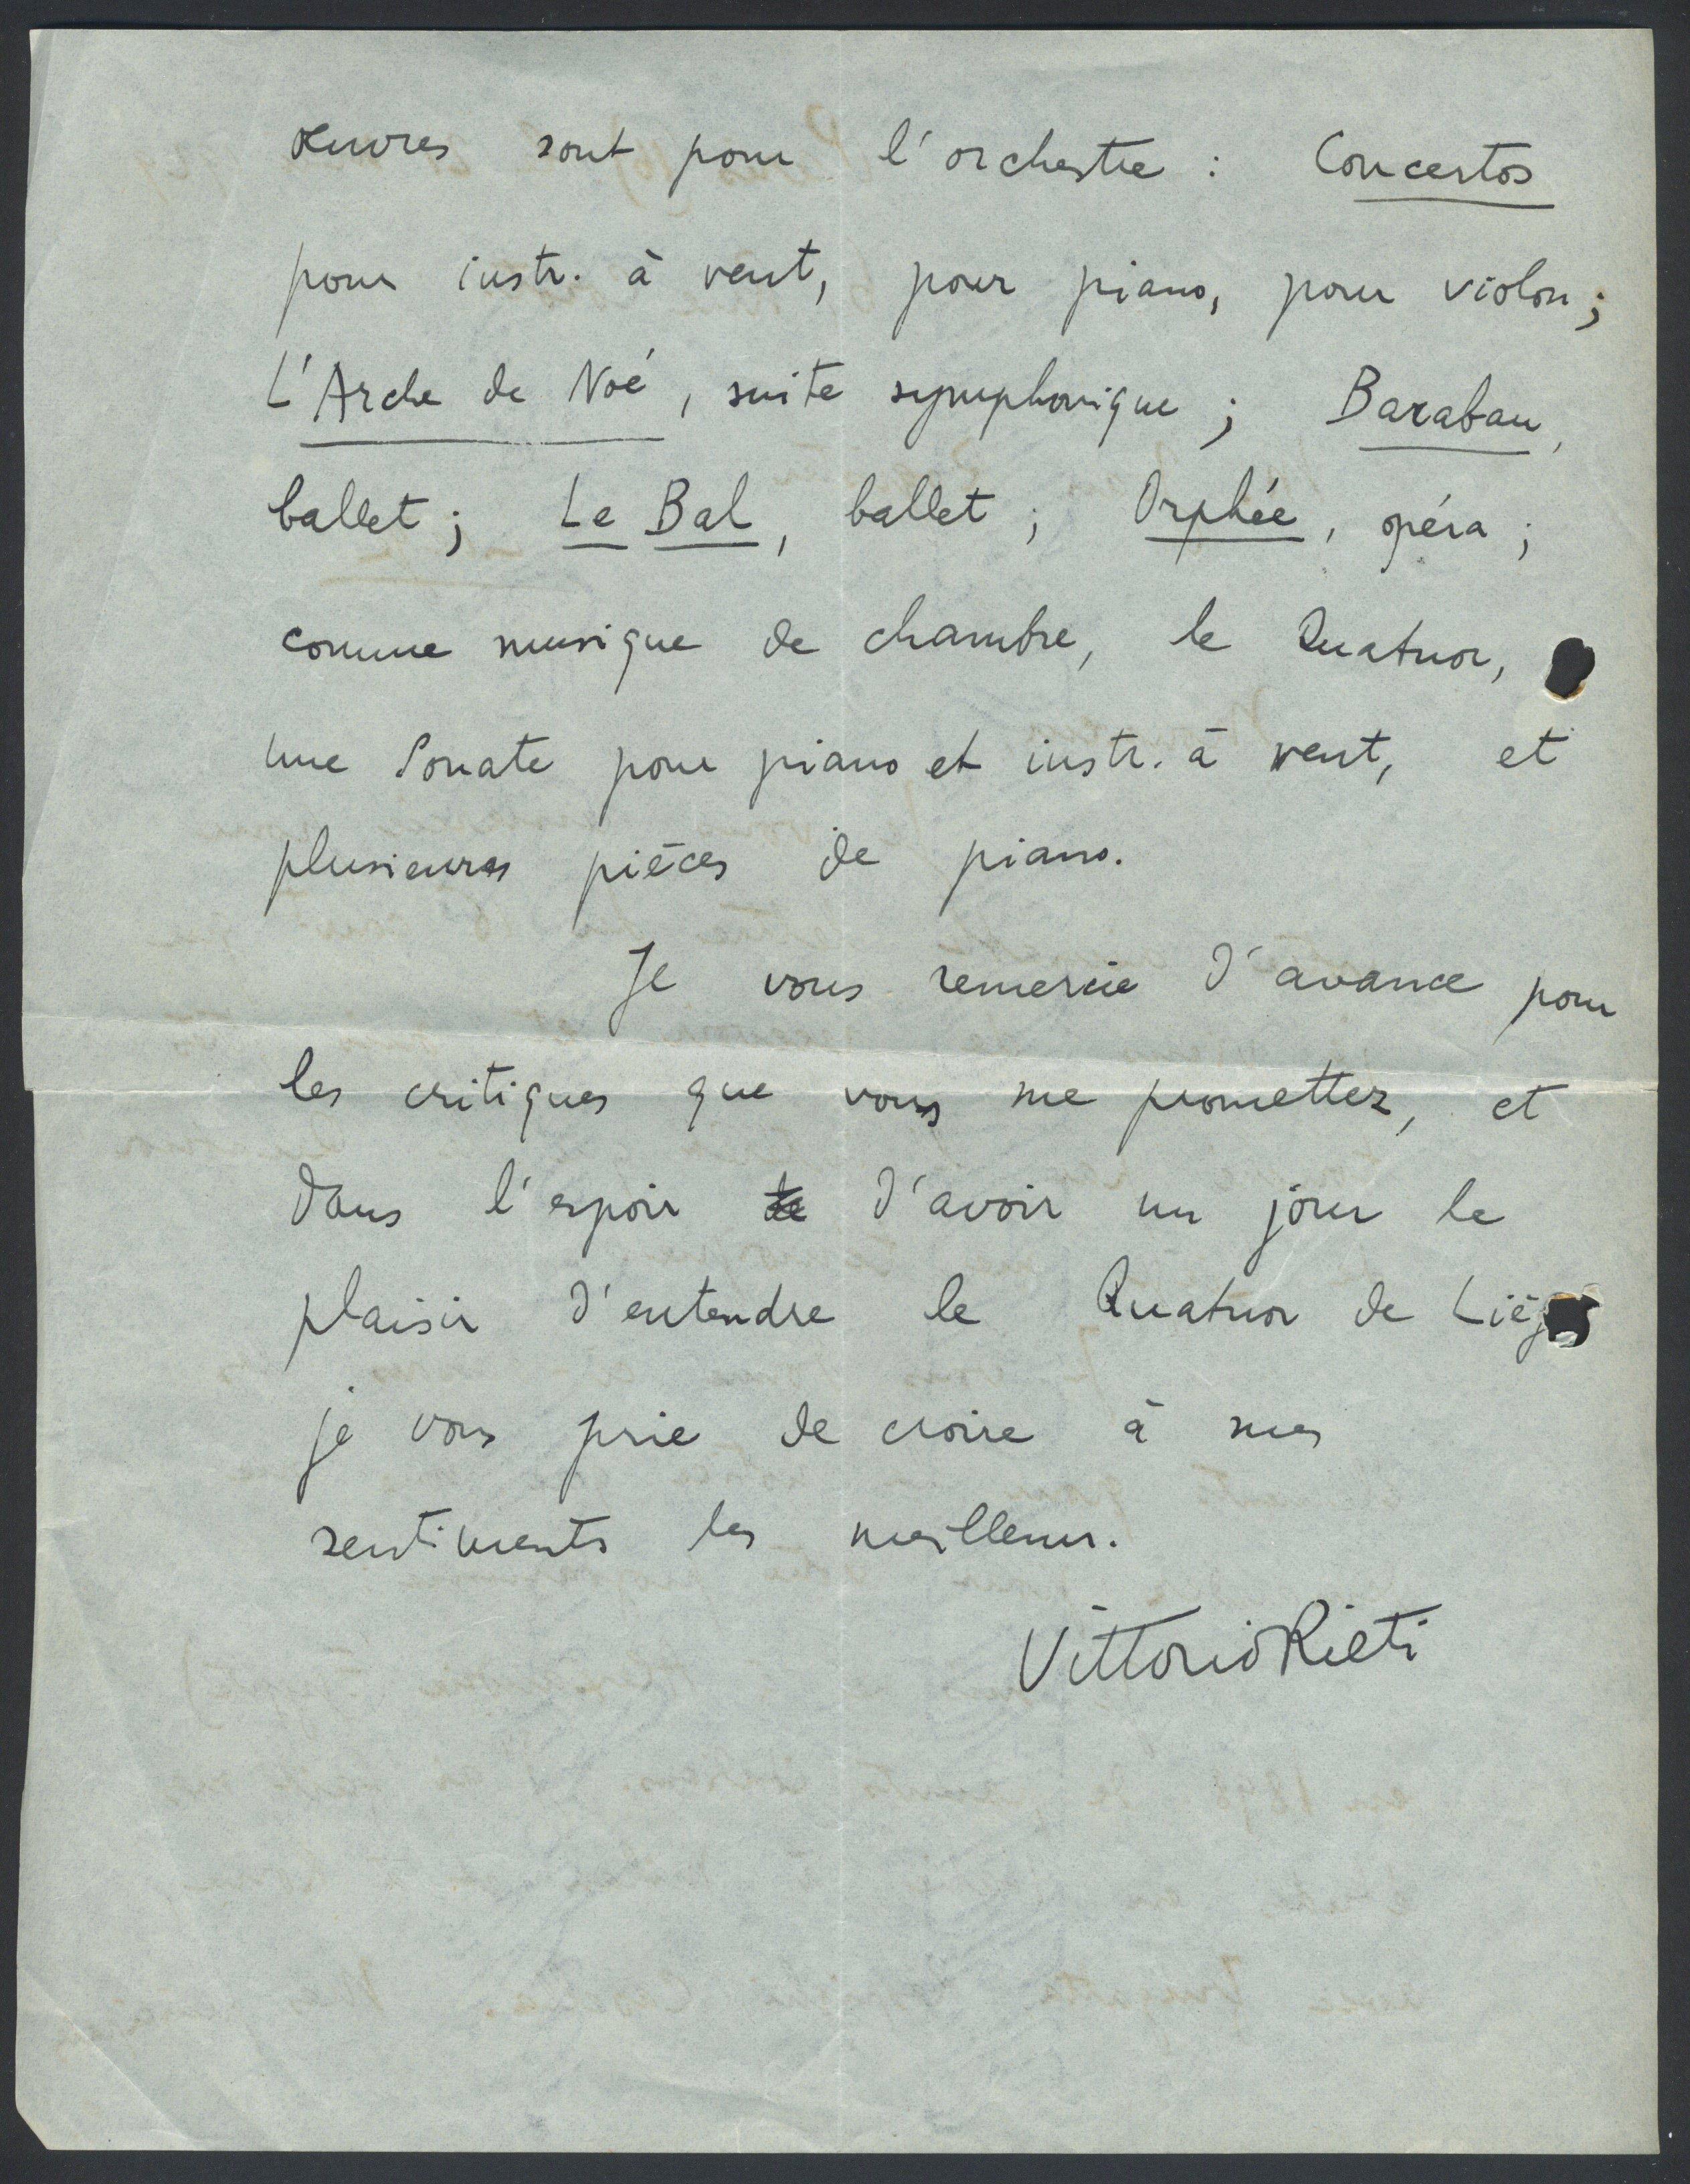 œuvres sont pour l'orchestre : Concertos
pour instr. à vent, pour piano, pour violon ;
L'Arche de Noé, suite symphonique ; Barabau,
ballet ; Le Bal, ballet ; Orphée, opéra ;
comme musique de chambre, le Quatuor,
une Sonate pour piano et instr. à vent, et
plusieurs pièces de piano.
Je vous remercie d'avance pour
les critiques que vous me promettez, et
dans l'espoir de d'avoir un jour le
plaisir d'entendre le Quatuor de Liég
je vous prie de croire à mes
sentiments les meilleurs.
Vittorio Rieti